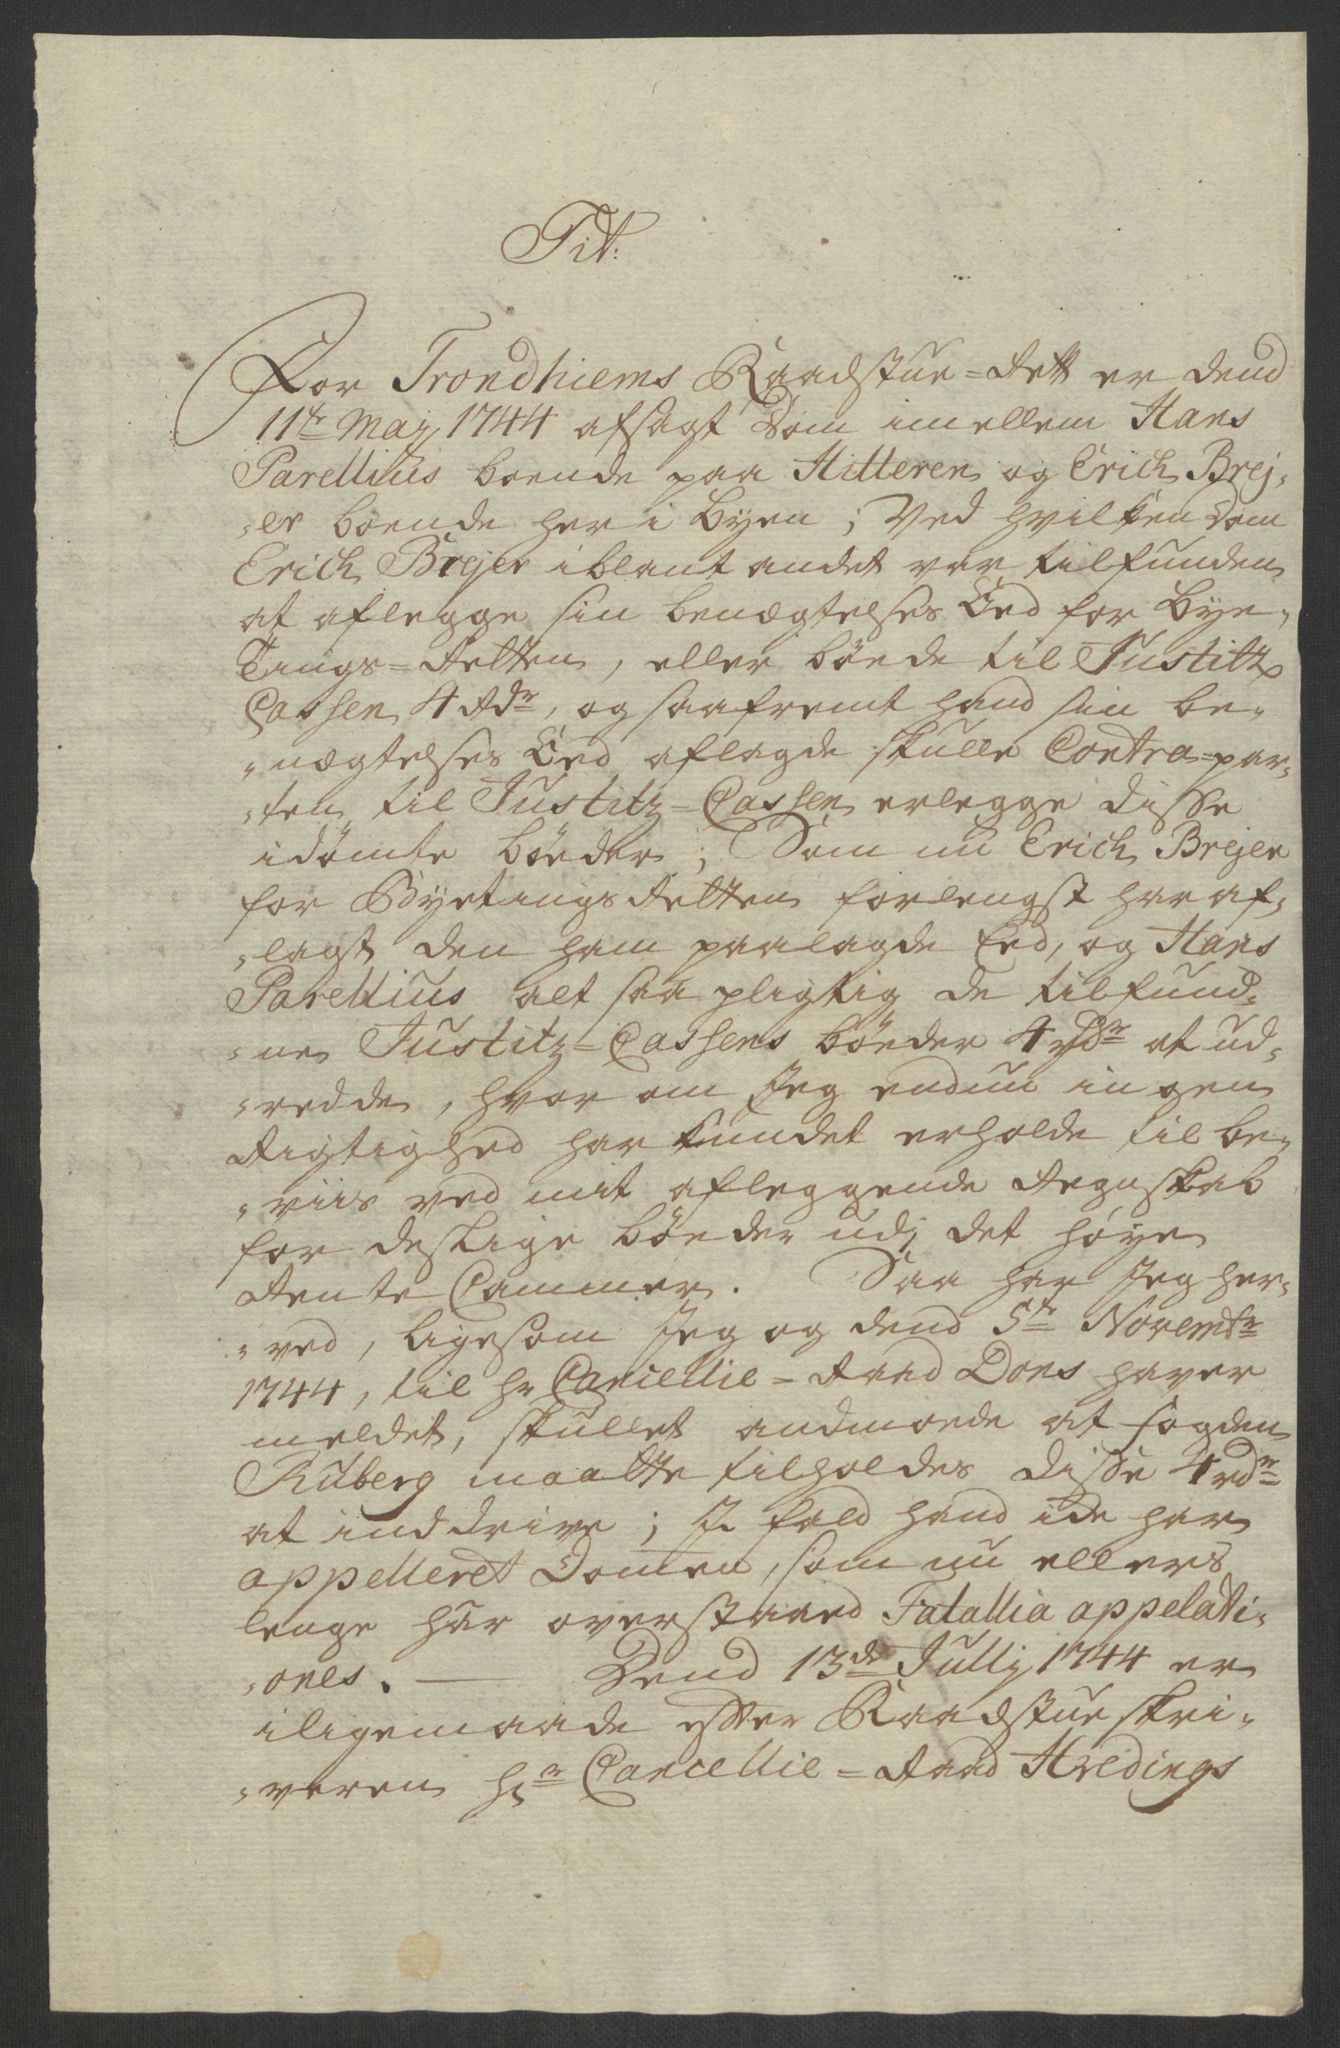 Tit:
For Trondhiems Raadstue=Rett er dend
11te Maij 1744 afsagt Dom imellem Hans
Parellius boende paa Hitteren og Erich Brej-
-er boende her i Byen; Ved hvilken Dom
Erich Brejer iblant andet var tilfunden
at aflegge sin benægtelses Eed for Bye-
Tings=Retten, eller bøede til Justitz
Cassen 4 Rdr, og saafremt hand sin be-
-nægtelses Eed aflagde skulle Contra=par-
-ten til Justitz=Cassen erlegge disse
idømte bøeder; Som nu Erich Brejer
for Byetings Retten forlengst har af-
-lagt den ham paalagde Eed, og Hans
Parellius alt saa pligtig de tilfund-
-ne Justitz=Cassens bøeder 4 rdr at ud-
-redde, hvor om Jeg endnu ingen
Rigtighed har kundet erholde til be-
-viis ved mit afleggende Regnskab
for deslige bøeder udj det høye
Rente Cammer. Saa har Jeg her-
-ved, ligesom Jeg og dend 5te Novembr
1744, til hr Cancellie=Raad Dons haver
meldet, skullet andmoede at fogden
Ruberg maatte tilholdes disse 4 rdr
at inddrive; I fald hand ide har
appelleret Domen, som nu ellers
lenge har overstaaed Fatallia appelati-
-ones. — Dend 13de Jullij 1744 er
iligemaade efter Raadstueskri-
-veren hr Cancellie=Raad Hvedings